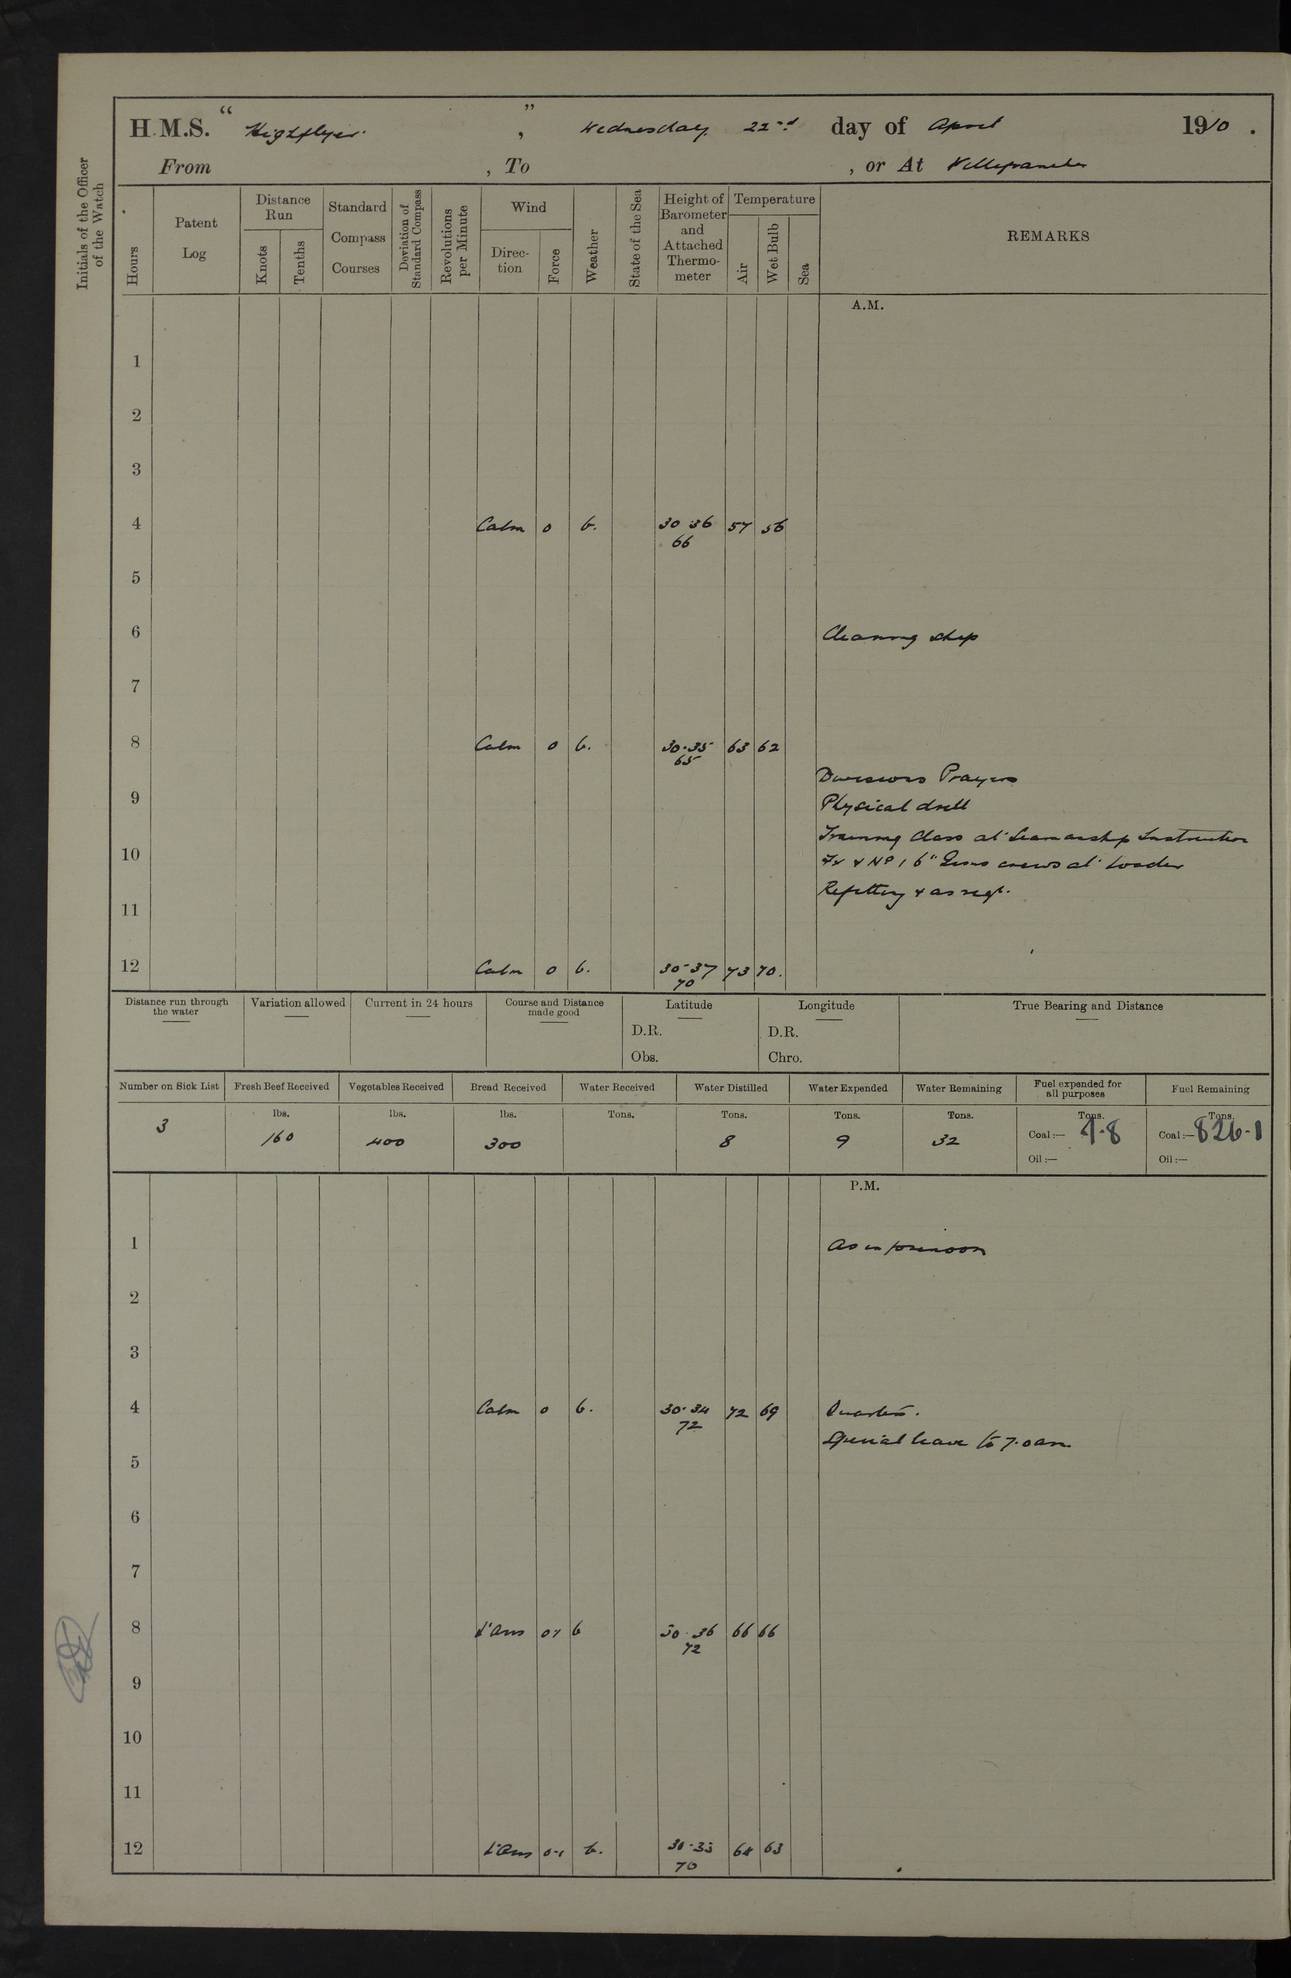 H.M.S. "Highflyer." , Wednesday 22nd day of April 1910.
From , To , or At Villefranche
Initials of the Officer of the Watch
Hours
Patent Log
Distance Run
Knots
Tenths
Standard Compass Courses
Deviation of Standard Compass
Revolutions per Minute
Wind
Direction
Force
Weather
State of the Sea
Height of Barometer and Attached Thermometer
Temperature
Air
Wet Bulb
Sea
REMARKS
A.M.
1
2
3
4 Calm 0 b. 30.36 57 56
66
5
6 Cleaning ship
7
8 Calm 0 b. 30.35 63 62
65
Divisions Prayers
9 Physical drill
Training Class at Seamanship Instruction
10 Fx & No 1 6" Guns crews at Loader
Refitting & as reqt.
11
12 Calm 0 b. 30.37 73 70.
70
Distance run through the water
Variation allowed
Current in 24 hours
Course and Distance made good
Latitude
D.R.
Obs.
Longitude
D.R.
Chro.
True Bearing and Distance
Number on Sick List Fresh Beef Received Vegetables Received Bread Received Water Received Water Distilled Water Expended Water Remaining Fuel expended for all purposes Fuel Remaining
lbs. lbs. lbs. Tons. Tons. Tons. Tons. Tons. Tons.
3 160 400 300 8 9 32 Coal:— 9.8 Coal:— 826.1
Oil:— Oil:—
P.M.
1 As in forenoon
2
3
4 Calm 0 b. 30.34 72 69 Quarters.
72
Special leave to 7.0am.
5
6
7
8 L'Airs 01 b 30.36 66 66
72
9
10
11
12 L'Airs 0-1 b. 30.33 64 63
70